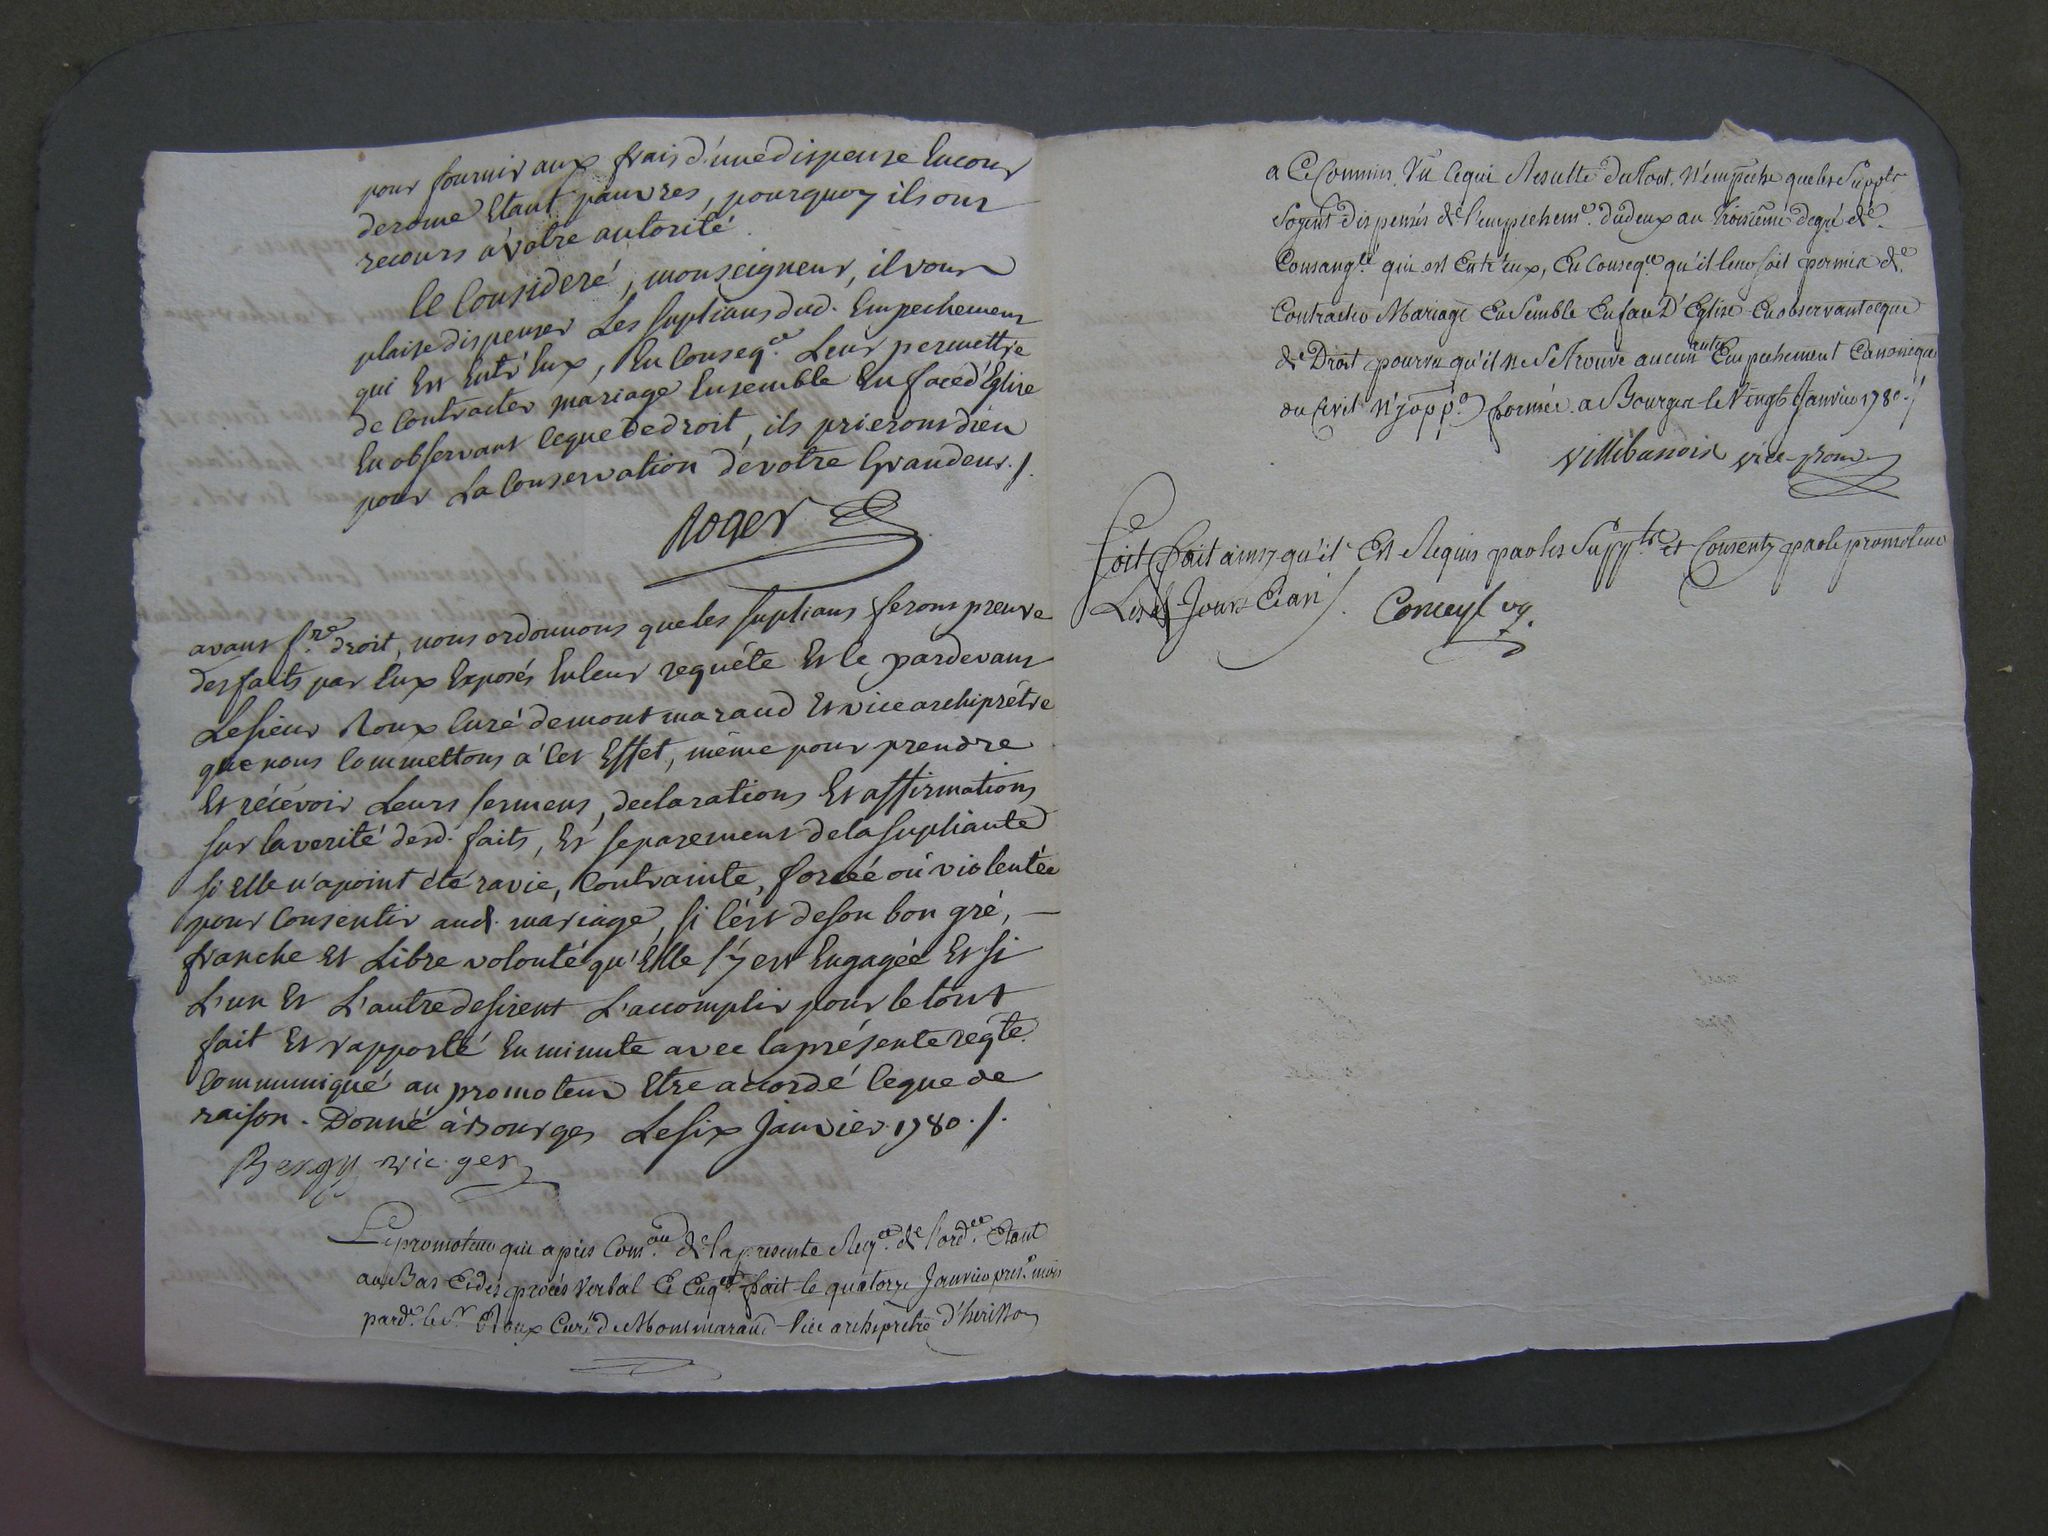 pour fournir aux frais d'une dispense En cour
de rome Etant pauvres, pourquoy ils ont
recours à votre autorité.
Ce Consideré, monseigneur, il vous
plaise dispenser Les suplians dud. Empechement
qui Est Entr'Eux, En Conseq.ce Leur permettre
de Contracter mariage Ensemble En face d'Eglise
En observant ceque de droit, ils prieront dieu
pour La Conservation de votre Grandeur./.
Roger
avant f.re droit, nous ordonnons que les suplians feront preuve
des faits par Eux Exposés En leur requête Et ce pardevant
Le sieur Roux Curé de montmaraud Et vice archiprêtre
que nous Commettons à Cet Effet, même pour prendre
Et récévoir Leurs sermens, declarations Et affirmations
sur la verité desd. faits, Et separement de la supliante
si Elle n'a point été ravie, Contrainte, forcée ou violentée
pour Consentir aud. mariage, si c'est de son bon gré,
franche Et Libre volonté qu'Elle s'y est Engagée Et si
L'un Et L'autre desirent L'accomplir pour le tout
fait Et rapporté En minute avec la présente reqte.
Communiqué au promoteur Etre accordé ceque de
raison. Donné à Bourges Le six Janvier 1780./.
vic. ger
Le promoteur qui a pris Com.on de la presente Req.te de l'ord.ce Etant
au Bas Et des procès verbal Et Enq.te fait le quatorze Janvier pres.t mois
pard.t le S.r Roux Curé de Montmaraud Vice archiprêtre d'herisson
a Ce Commis. Vu Ce qui Resulte du tout. N'empeche que les Suppts
soyent dispensés de l'empechem.t du deux au troisieme degré de
Consang.té qui est Entr'eux, En Conseq.ce qu'il leur soit permis de
Contracter Mariage Ensemble En face D'Eglise En observant ce que
de Droit pourvu qu'il ne se trouve aucun autre Empechement Canonique
ou Civil N'y opp.on formée. a Bourges le Vingt Janvier 1780./
vice-prom
soit fait ainsy qu'il Est Requis par les Supp.ts et Consenty par le promoteur
Les d. Jour Et an/. vg.